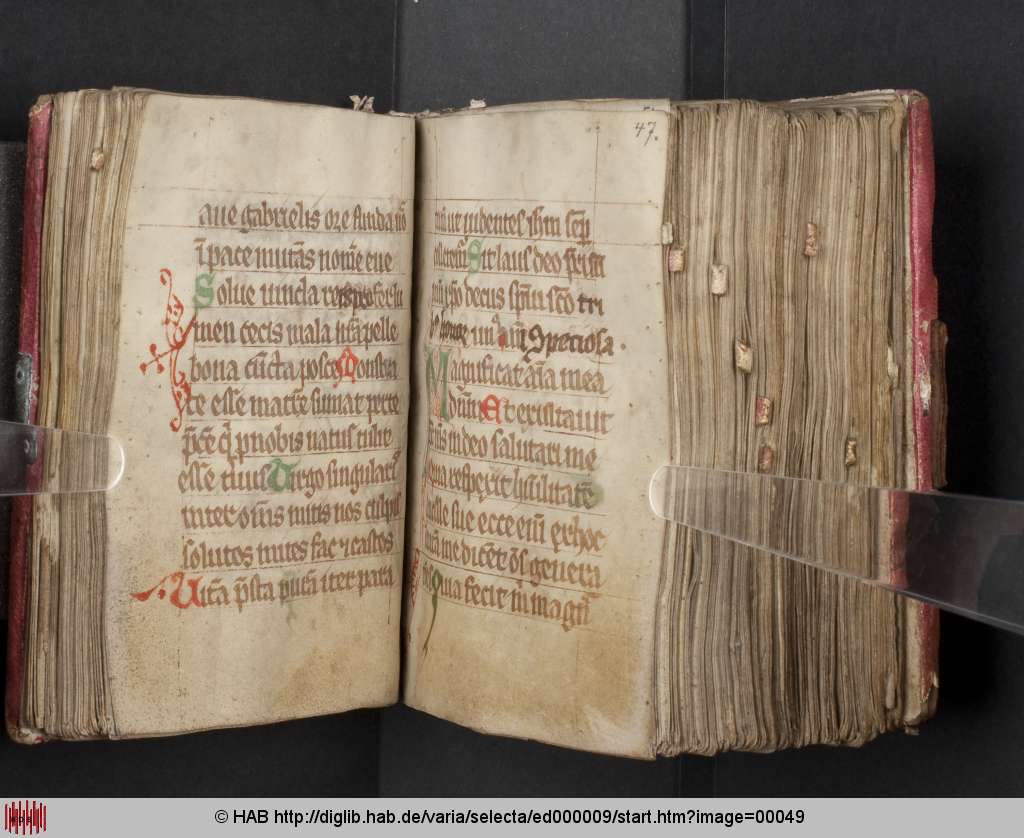 aue gabrielis ore funda nō
ī pace mutās nomē eue
Solue vincla reis profer lu
men cecis mala nr̄a pelle
bona cūcta posce Monstra
te esse matrē sumat per te
p̄ces q̄ p nobis natus tulit
esse tuus Virgo singularis
inter om̄s mitis nos culpis
solutos mites fac ⁊ castos
Uitā p̄sta purā iter para
47.
tutū ut videntes ihm̄ semp̄
colletemur Sit laus deo patri
summo xp̄o decus sp̄ui sc̄o tri
honor unꝰ añ Speciosa.
Magnificat aīa mea
dn̄m Et exultauit
in deo salutari me
Quia respexit hūilitatē
ancille sue ecce em̄ ex hoc
me dicēt om̄s genera
Quia fecit m̄ magn̄
© HAB http://diglib.hab.de/varia/selecta/ed000009/start.htm?image=00049